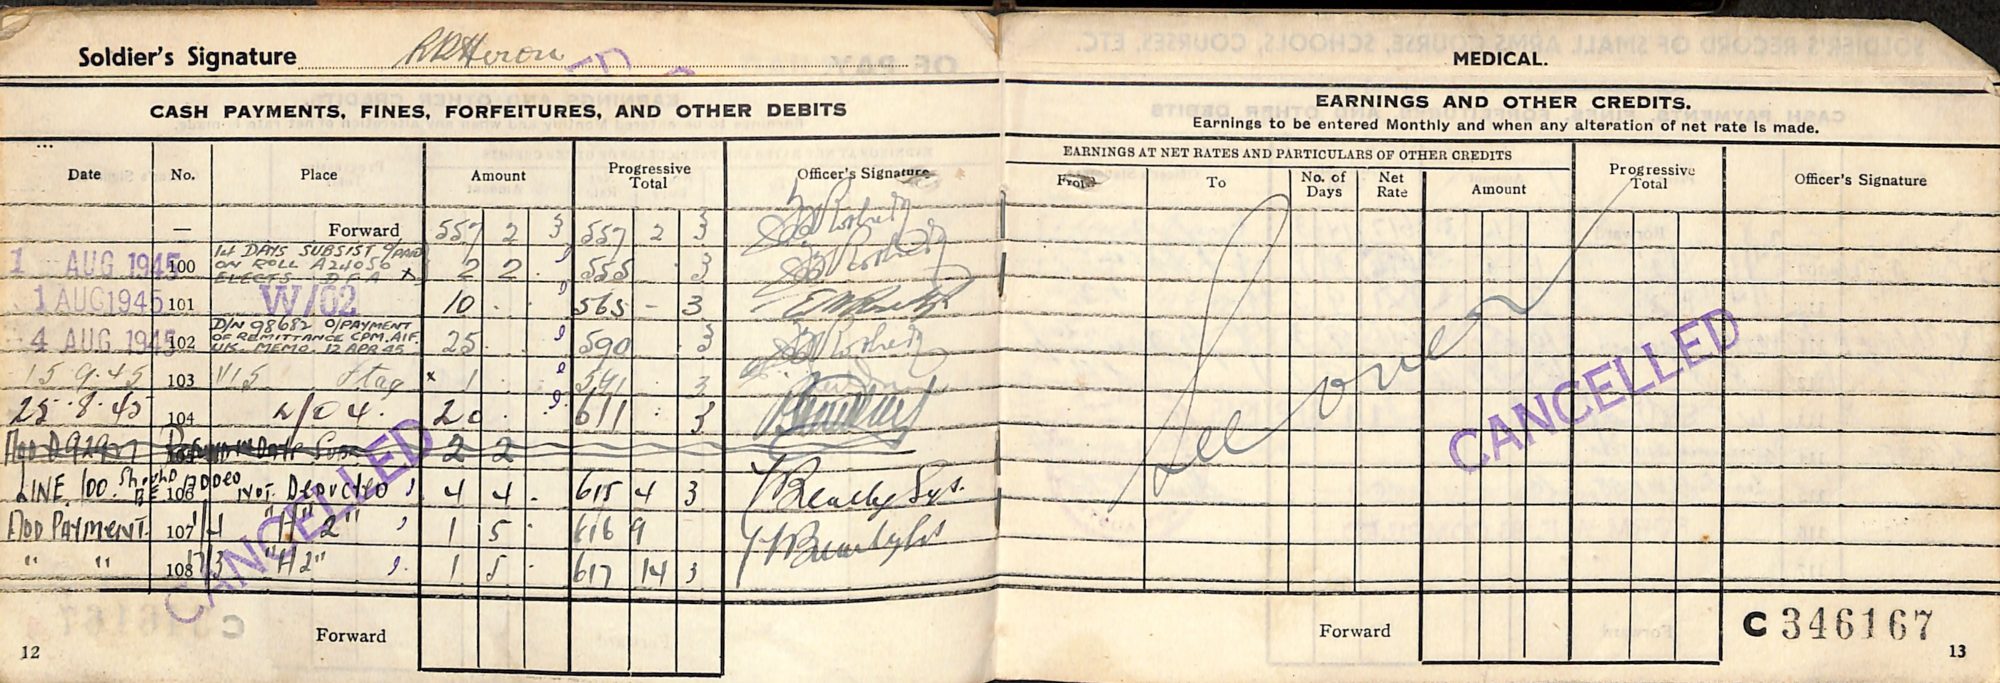 Soldier's Signature R R Heron
CASH PAYMENTS, FINES, FORFEITURES, AND OTHER DEBITS
Date No. Place Amount Progressive Total Officer's Signature
— Forward 557 2 3 557 2 3
1 AUG 1945 100 14 DAYS SUBSIST O/PAID ON ROLL A24056 2 2 . 555 . 3
1 AUG 1945 101 W/62 10 . . 565 - 3
4 AUG 1945 102 D/N 98682 O/PAYMENT OF REMITTANCE CPM. AIF. UK. MEMO. 12 APR 45 25 . . 590 . 3
15.9.45 103 V15 Stag x 1 . . 591 . 3
25.8.45 104 L/04. 20 . . 611 . 3
2 2
LINE 100. Should BE ADDED 106 NOT DEDUCTED 4 4 - 615 4 3
ADD PAYMENT. 107 "H 2" 1 5 616 9
" " 108 "H2" 1 5 . 617 14 3
Forward
12
CANCELLED
MEDICAL.
EARNINGS AND OTHER CREDITS.
Earnings to be entered Monthly and when any alteration of net rate is made.
EARNINGS AT NET RATES AND PARTICULARS OF OTHER CREDITS
From To No. of Days Net Rate Amount Progressive Total Officer's Signature
See over
CANCELLED
Forward
C 346167
13